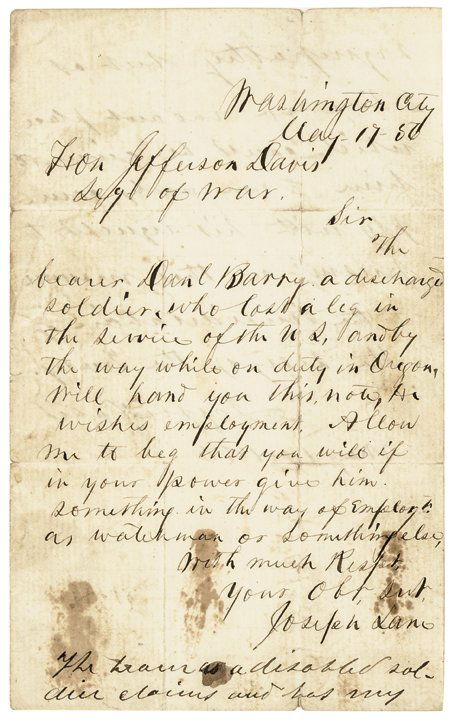 Washington City
May 17 56
Hon Jefferson Davis
Secy of War.
Sir
The
bearer Danl Barry a discharged
soldier, who lost a leg in
the service of the U S, and by
the way while on duty in Oregon,
Will hand you this note, He
wishes employment. Allow
me to beg that you will if
in your power give him
something in the way of Employt.
as waterman or something else,
With much Respt.
Your Obt, Svt,
Joseph Lane
The bearer as a disabled sol-
dier claims and has my